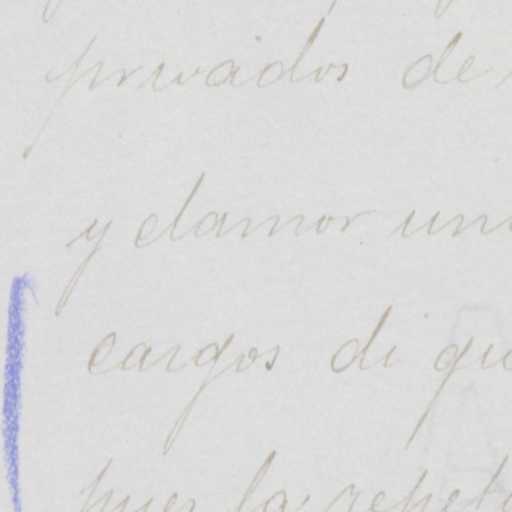 privados de
y clamor un
cargos di qu
pues la repet